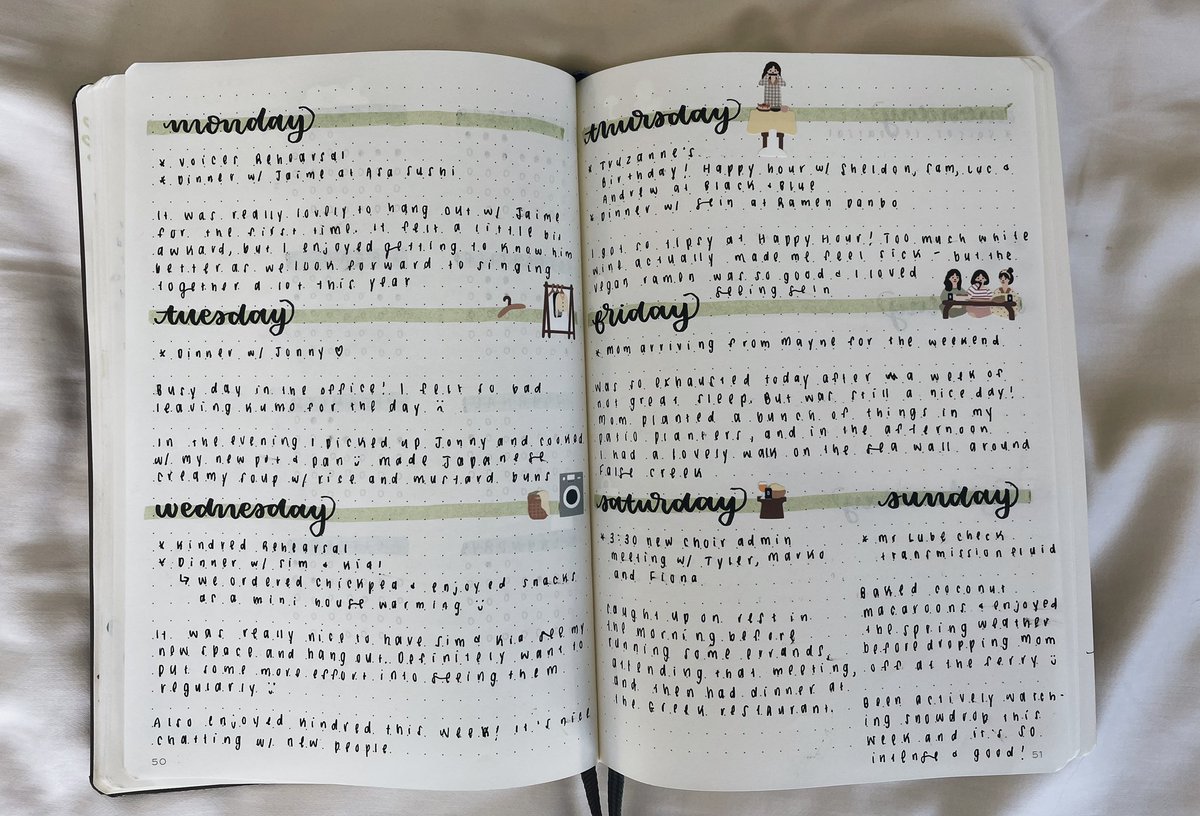 monday
* Voices Rehearsal
* Dinner w/ Jaime at Asa Sushi
It was really lovely to hang out w/ Jaime
for the first time. It felt a little bit
awkard, but I enjoyed getting to know him
better as we look forward to singing
together a lot this year
tuesday
* Dinner w/ Jonny ♡
Busy day in the office! I felt so bad
leaving Kumo for the day :(
In the evening I picked up Jonny and cooked
w/ my new pot & pan :) made Japanese
creamy soup w/ rice and mustard buns
wednesday
* Kindred Rehearsal
* Dinner w/ Sim & Kia!
↳ we ordered chickpea & enjoyed snacks
as a mini house warming :)
It was really nice to have Sim & Kia see my
new space and hang out. Definitely want to
put some more effort into seeing them
regularly :)
Also enjoyed Kindred this week! It's nice
chatting w/ new people
50
thursday
* Truzanne's
Birthday! Happy hour w/ Sheldon, Sam, Luc &
Andrew at Black & Blue
* Dinner w/ Sein at Ramen Danbo
I got so tipsy at Happy Hour! Too much white
wine actually made me feel sick - but the
vegan ramen was so good & I loved
seeing Sein
friday
* Mom arriving from Mayne for the weekend
Was so exhausted today after a week of
not great sleep. But was still a nice day!
Mom planted a bunch of things in my
patio planters, and in the afternoon
I had a lovely walk on the sea wall around
False Creek
saturday
* 3:30 new choir admin
meeting w/ Tyler, Marko
and Fiona
Caught up on rest in
the morning before
running some errands,
attending that meeting,
and then had dinner at
the Greek restaurant.
sunday
* Mr Lube check
transmission fluid
Baked coconut
macaroons & enjoyed
the spring weather
before dropping mom
off at the ferry :)
Been actively watch-
ing snowdrop this
week and it's so
intense & good!
51